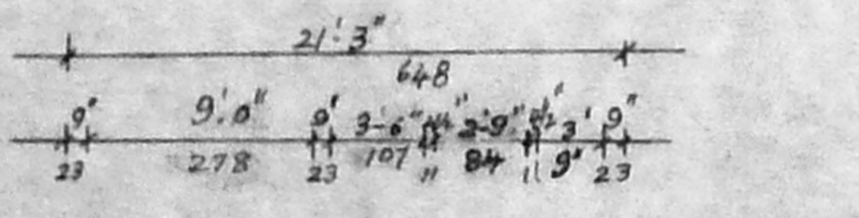 21'-3"
648
9" 9'.0" 9" 3'-6" 4½" 2'-9" 4½" 3' 9"
23 278 23 107 11 84 11 9" 23